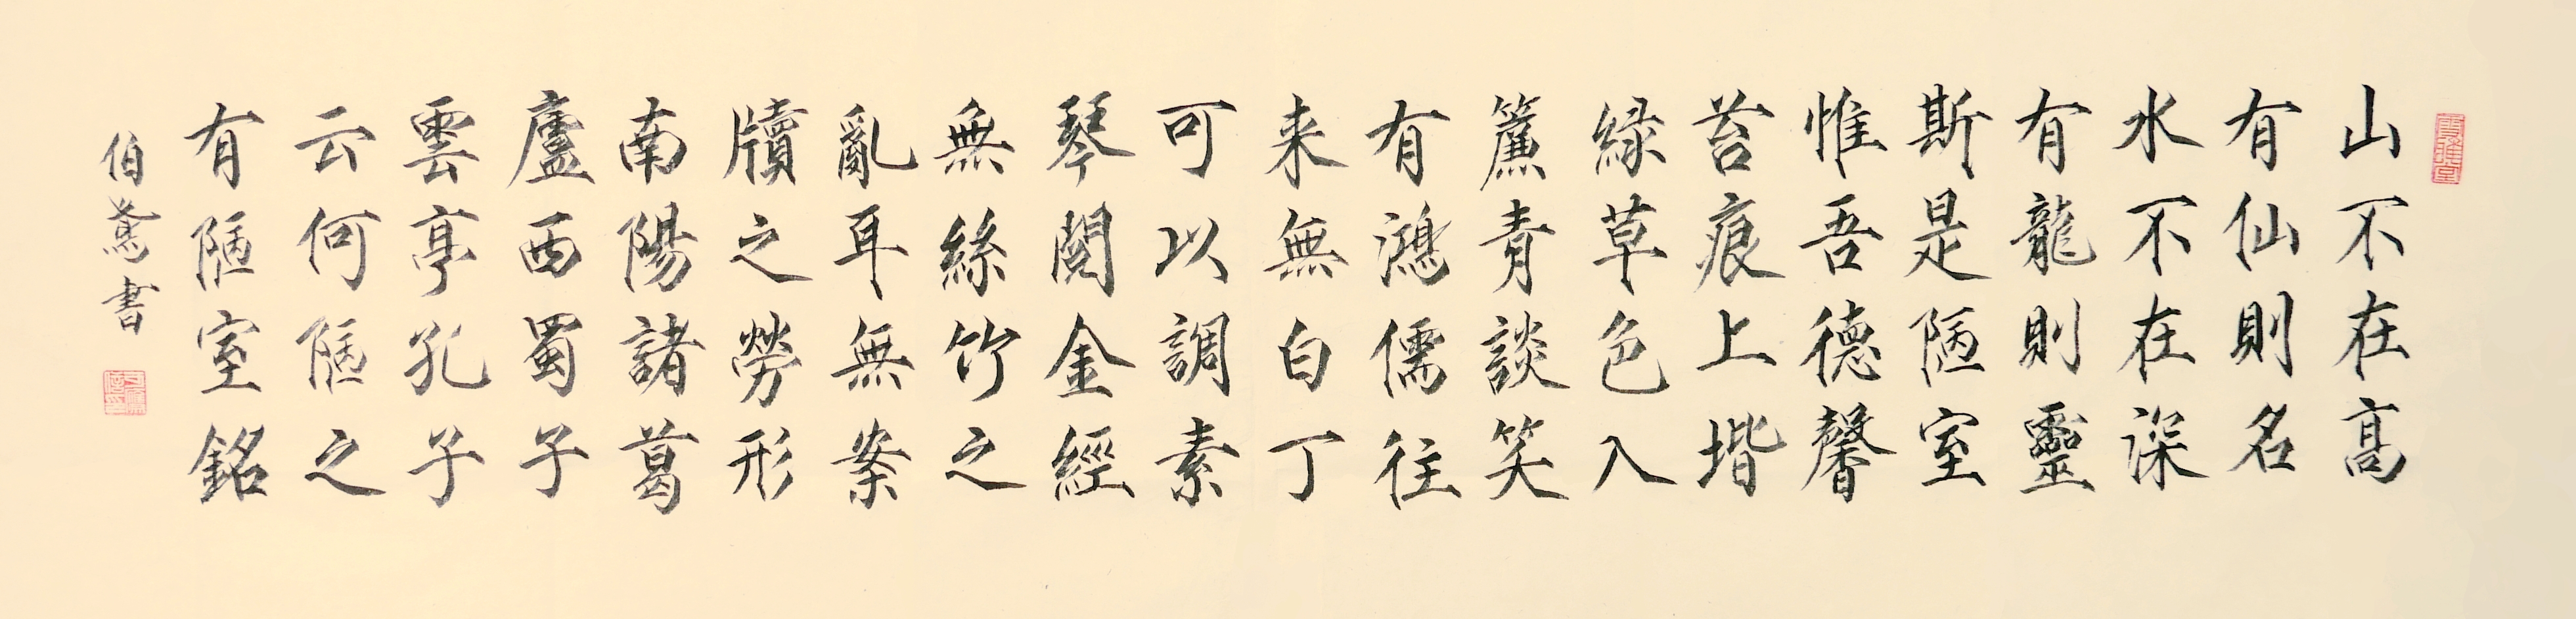 山不在高
有仙則名
水不在深
有龍則靈
斯是陋室
惟吾德馨
苔痕上堦
緑草色入
簾青談笑
有鴻儒往
来無白丁
可以調素
琴閱金經
無絲竹之
亂耳無案
牘之勞形
南陽諸葛
廬西蜀子
雲亭孔子
云何陋之
有陋室銘
伯書